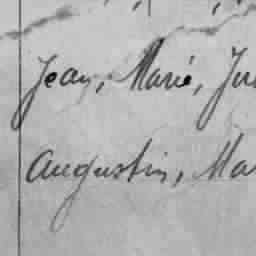 Jean, Marie,
Augustin,